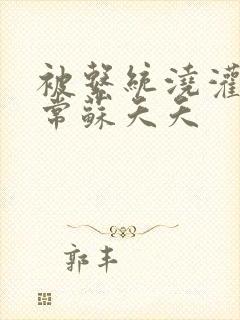 被繫統澆灌
常蘇夭夭
郭丰